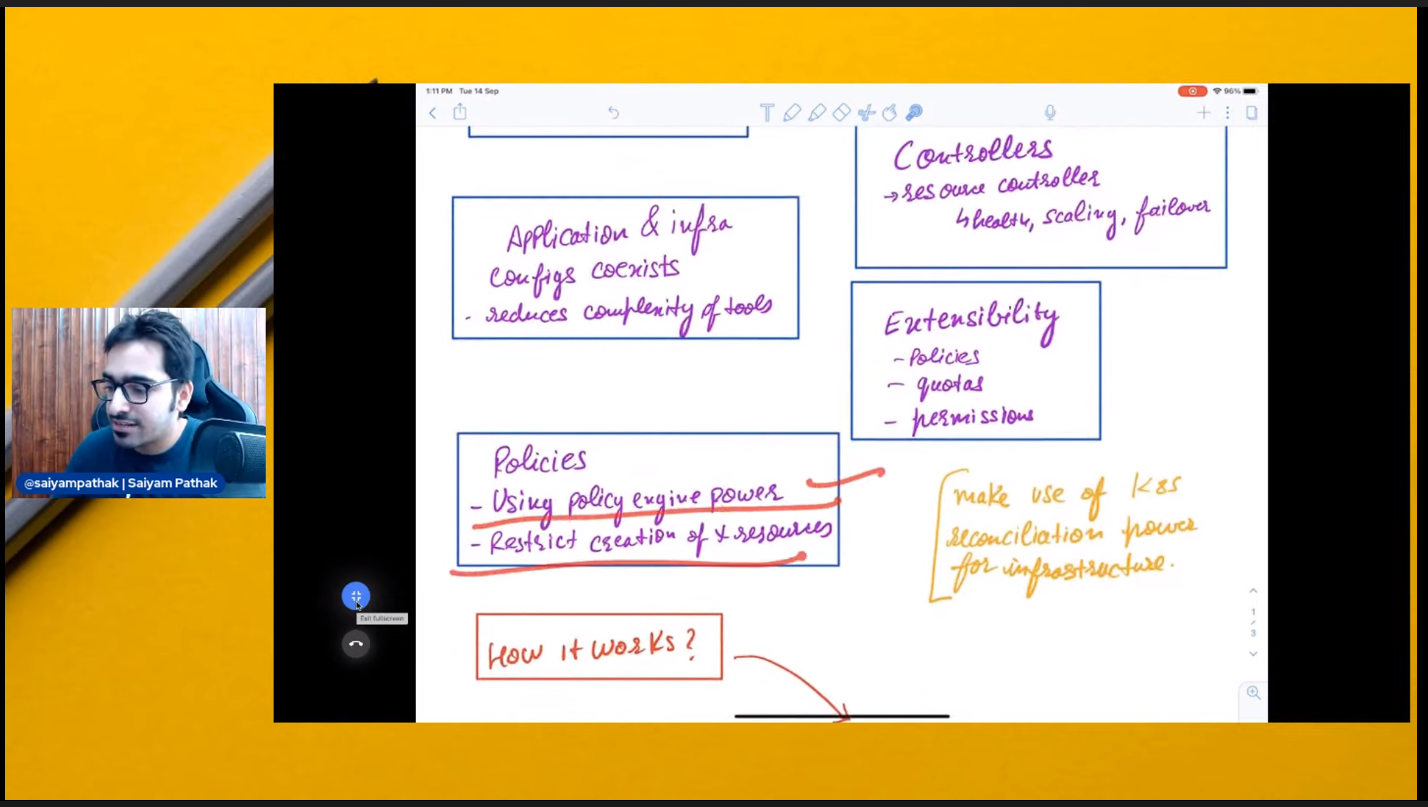 1:11 PM Tue 14 Sep
96%
Controllers
→ resource controller
↳ health, scaling, failover
Application & infra
configs coexists
- reduces complexity of tools
Extensibility
- Policies
- quotas
- permissions
Policies
- Using policy engine power
- Restrict creation of x resources
make use of K8s
reconciliation power
for infrastructure.
How it works?
@saiyampathak | Saiyam Pathak
Exit fullscreen
1
/
3